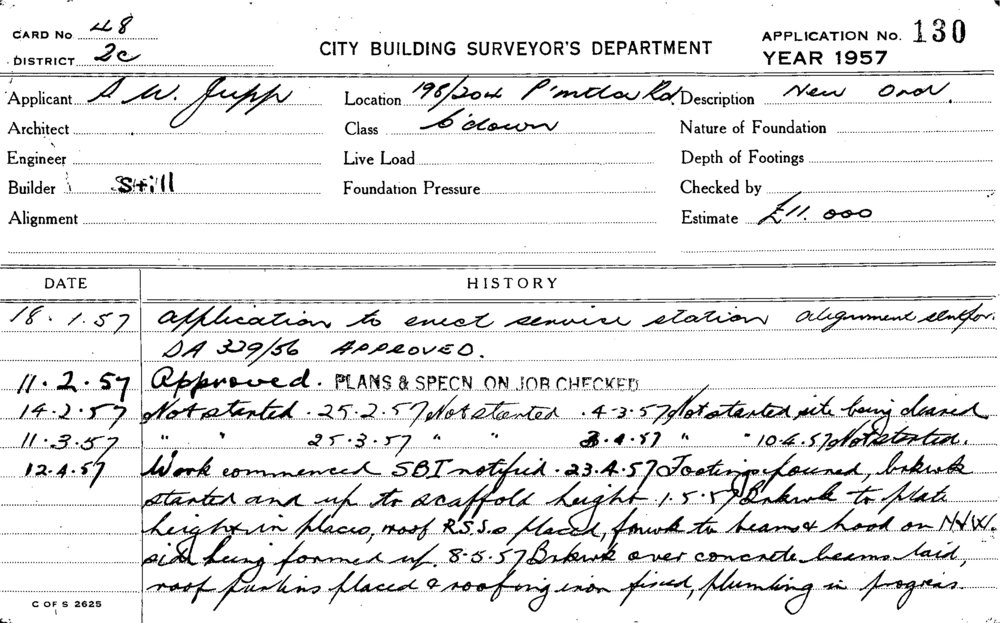 CARD No 48
DISTRICT 2c
CITY BUILDING SURVEYOR'S DEPARTMENT
APPLICATION No. 130
YEAR 1957
Applicant A W. Jupp Location 198/204 P'mtta Rd. Description New Ord.
Architect Class C'down Nature of Foundation
Engineer Live Load Depth of Footings
Builder Still Foundation Pressure Checked by
Alignment Estimate £11.000
DATE HISTORY
18.1.57 Application to erect service station alignment sent for.
DA 329/56 APPROVED.
11.2.57 Approved. PLANS & SPECN. ON JOB CHECKED
14.2.57 Not started. 25.2.57 Not started. 4-3.57 Not started site being cleared
11.3.57 " " 25-3.57 " " 3.4.57 " " 10.4.57 Not started.
12.4.57 Work commenced SBI notified. 23.4.57 Footings poured, brkwk
started and up to scaffold height. 1.5.57 Brkwk to plate
height in places, roof R.S.J.s placed, fmwk to beams & hood on N/W.
side being formed up. 8-5.57 Brkwk over concrete beams laid,
roof purlins placed & roofing iron fixed, plumbing in progress.
C OF S 2625